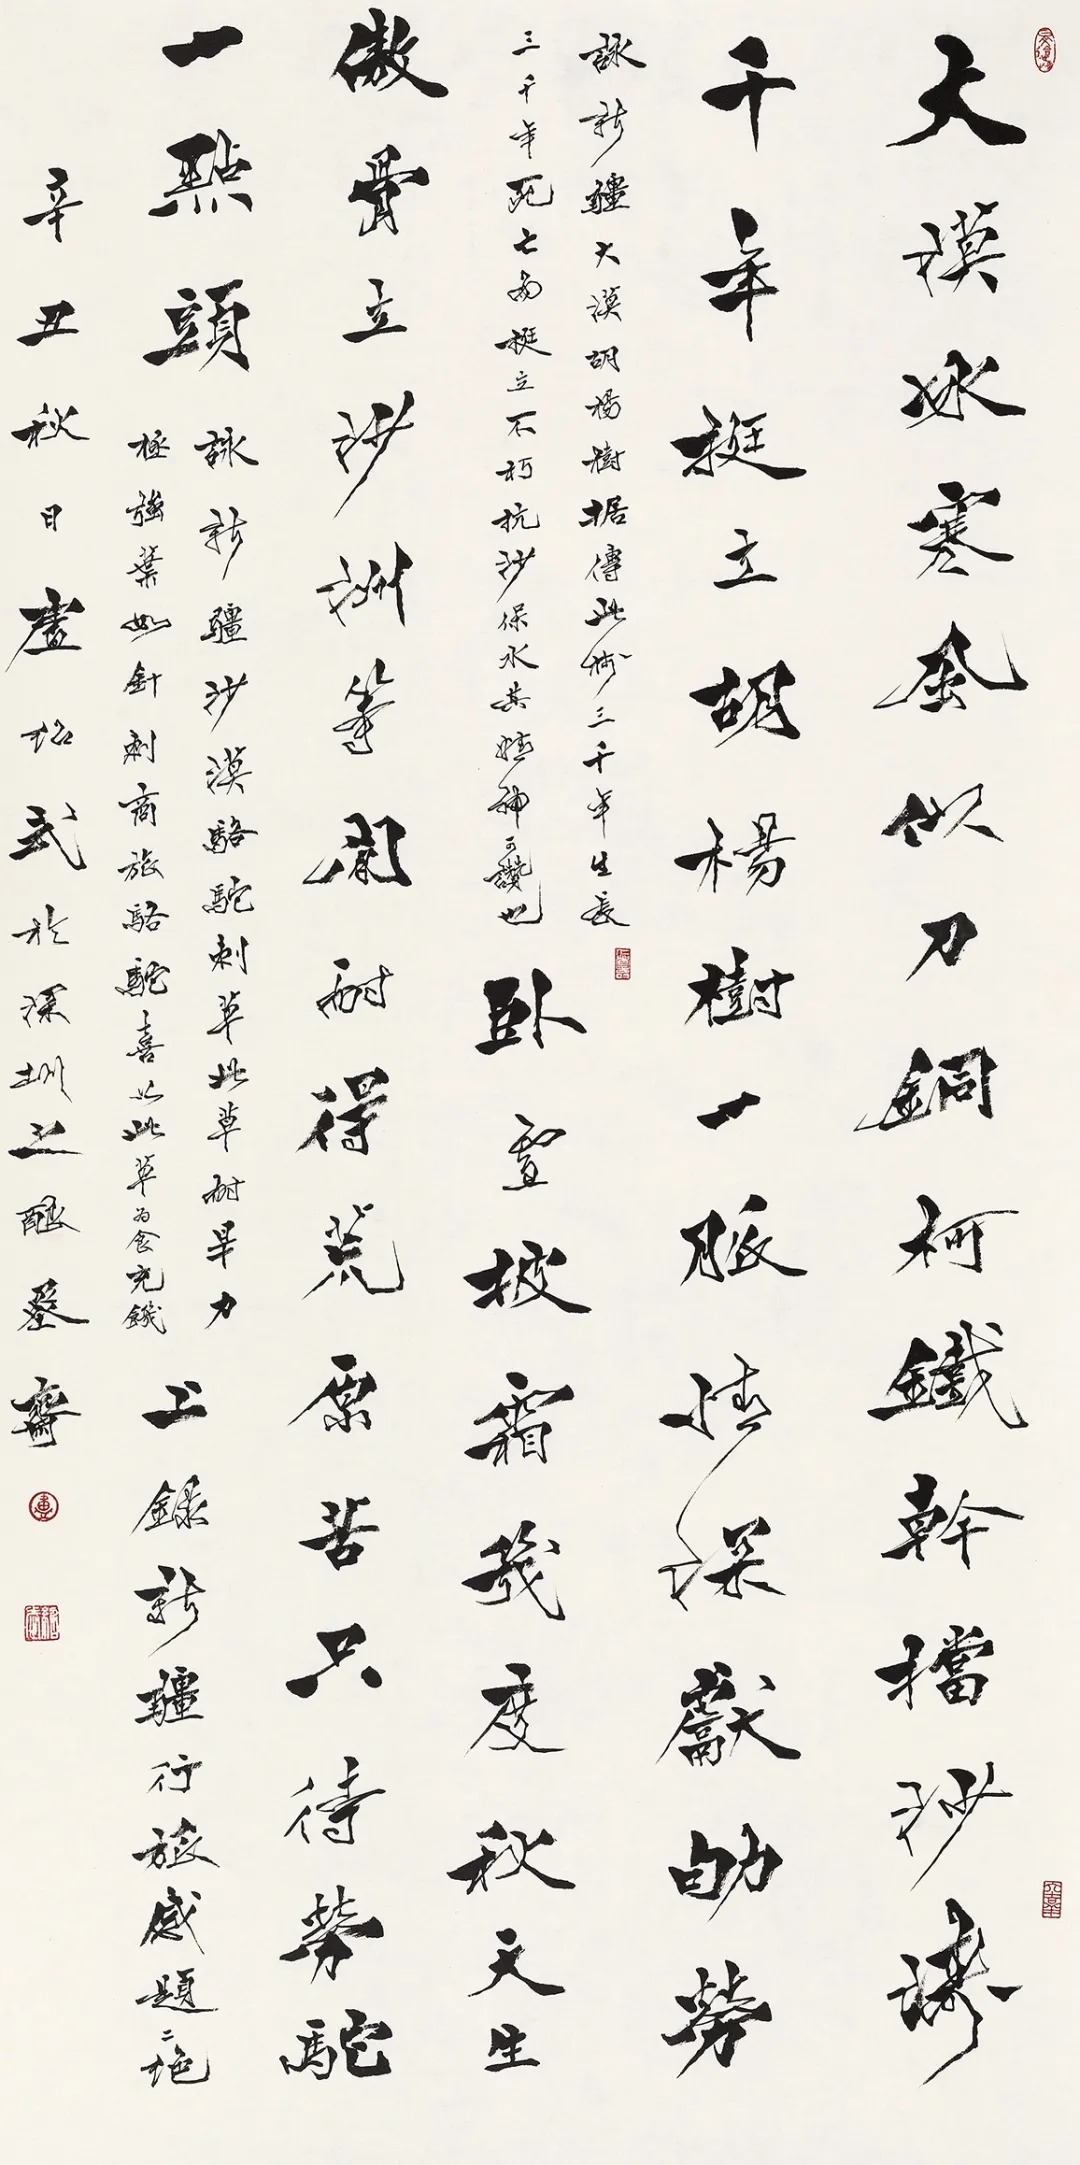 大漠冰寒風似刀銅柯鐵幹擋沙濤
千年挺立胡楊樹一脈情深獻劬勞
詠新疆大漠胡楊樹据傳此樹三千年生長
三千年死亡而挺立不朽抗沙保水其精神可讚也
臥雪披霜幾度秋天生
傲骨立沙洲等閒耐得荒原苦只待勞駝
一點頭
詠新疆沙漠駱駝刺草此草耐旱力
極強葉如針刺商旅駱駝喜以此草為食充饑
上錄新疆行旅感題二絕
辛丑秋日盧紹武於深圳之墨齋